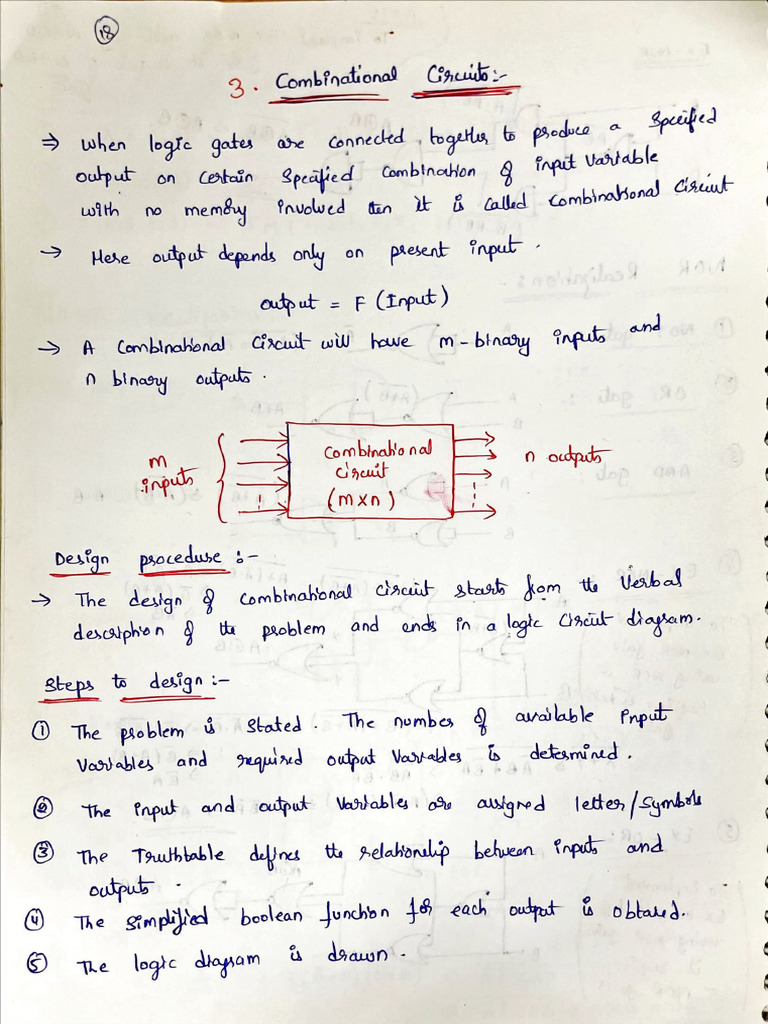 18
3. Combinational Circuits:-
⇒ When logic gates are connected together to produce a Specified
output on Certain Specified Combination of input Variable
with no memory involved then it is Called Combinational Circuit
→ Here output depends only on present input.
output = F (Input)
→ A Combinational Circuit will have m-binary inputs and
n binary outputs.
m
inputs
Combinational
Circuit
(m x n)
n outputs
Design procedure :-
→ The design of Combinational Circuit starts from the Verbal
description of the problem and ends in a logic Circuit diagram.
Steps to design:-
① The problem is Stated. The number of available Input
Variables and required output Variables is determined.
② The input and output Variables are assigned letter/Symbols
③ The Truthtable defines the relationship between inputs and
outputs.
④ The Simplified boolean function for each output is obtained.
⑤ The logic diagram is drawn.